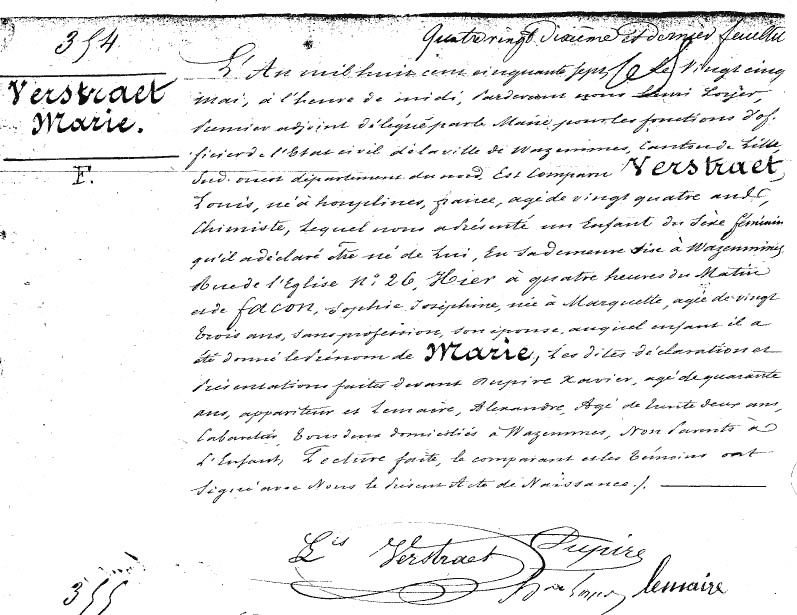 354
Quatre vingt dixième et dernier feuillet
Verstraet
Marie.
F.
L'An mil huit cent cinquante sept, le Vingt cinq
mai, à l'heure de midi, Pardevant nous Henri
premier adjoint délégué par le Maire, pour les fonctions d'of-
ficier de l'Etat civil de la ville de Wazemmes, Canton de Lille
Sud-ouest département du nord, Est Comparu Verstraet,
Louis, né à houplines, france, agé de vingt quatre ans,
Chimiste, Lequel nous a présenté un Enfant du Sexe féminin
qu'il a déclaré être né de Lui, En sa demeure sise à Wazemmes,
Rue de l'Eglise N° 26, Hier à quatre heures du Matin
et de facon, Sophie Joséphine, née à Marquette, agée de vingt
trois ans, sans profession, son épouse, auquel enfant il a
été donné le Prénom de Marie, Les dites déclaration et
Présentation faites devant Dupire Xavier, agé de quarante
ans, appariteur et Lemaire, Alexandre, Agé de trente deux ans,
Cabaretier, Tous deux domiciliés à Wazemmes, Non Parents à
L'Enfant, Lecture faite, le comparant et les témoins ont
Signé avec Nous le Présent Acte de Naissance ./.
Lis Verstraet Dupire
lemaire
355